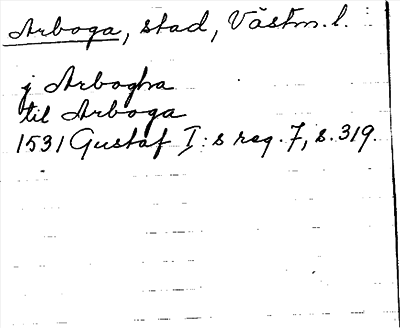 Arboga, stad, Västm. l.
j Arbogha
til Arboga
1531 Gustaf I:s reg. 7, s. 319.